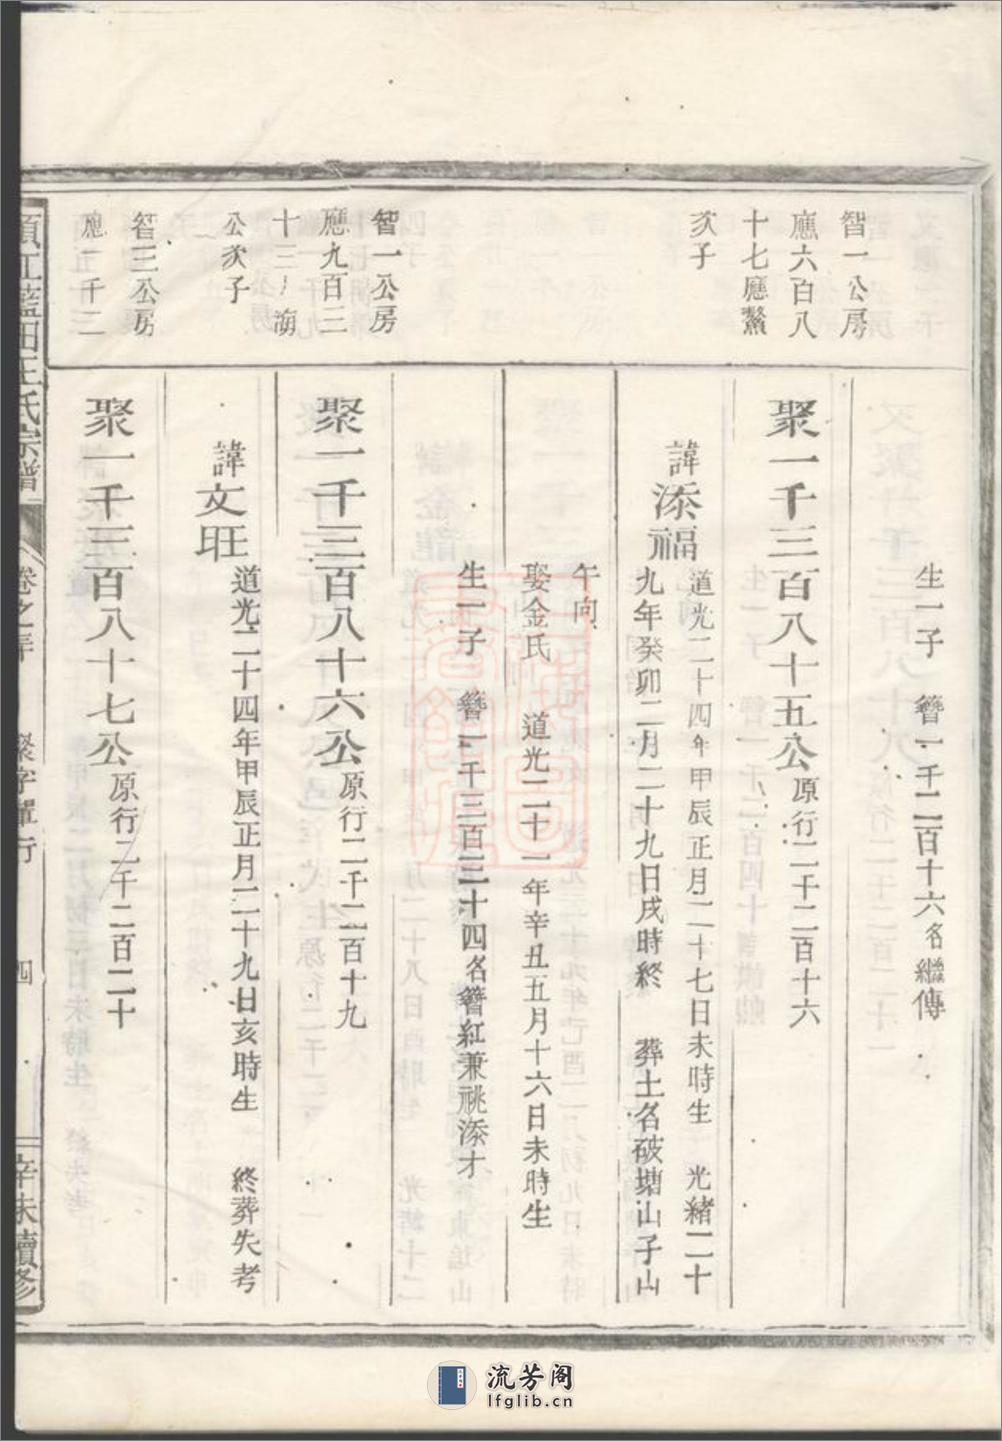 生一子　簪一千二百十六名繼傳
智一公房
應六百八
十七應鰲
次子
聚一千三百八十五公原行二千二百十六
諱添福
道光二十四年甲辰正月二十七日未時生　光緒二十
九年癸卯二月二十九日戌時終　葬土名破塘山子山
午向
娶金氏　道光二十一年辛丑五月十六日未時生
生一子　簪一千三百三十四名簪紅兼祧添才
智一公房
應九百三
十三
公次子
聚一千三百八十六公原行二千二百十九
諱文旺
道光二十四年甲辰正月二十九日亥時生　終葬失考
智三公房
應一千二
聚一千三百八十七公原行二千二百二十
江藍田王氏宗譜
卷之
聚字單行
四
辛未續修
流芳阁
lfglib.cn